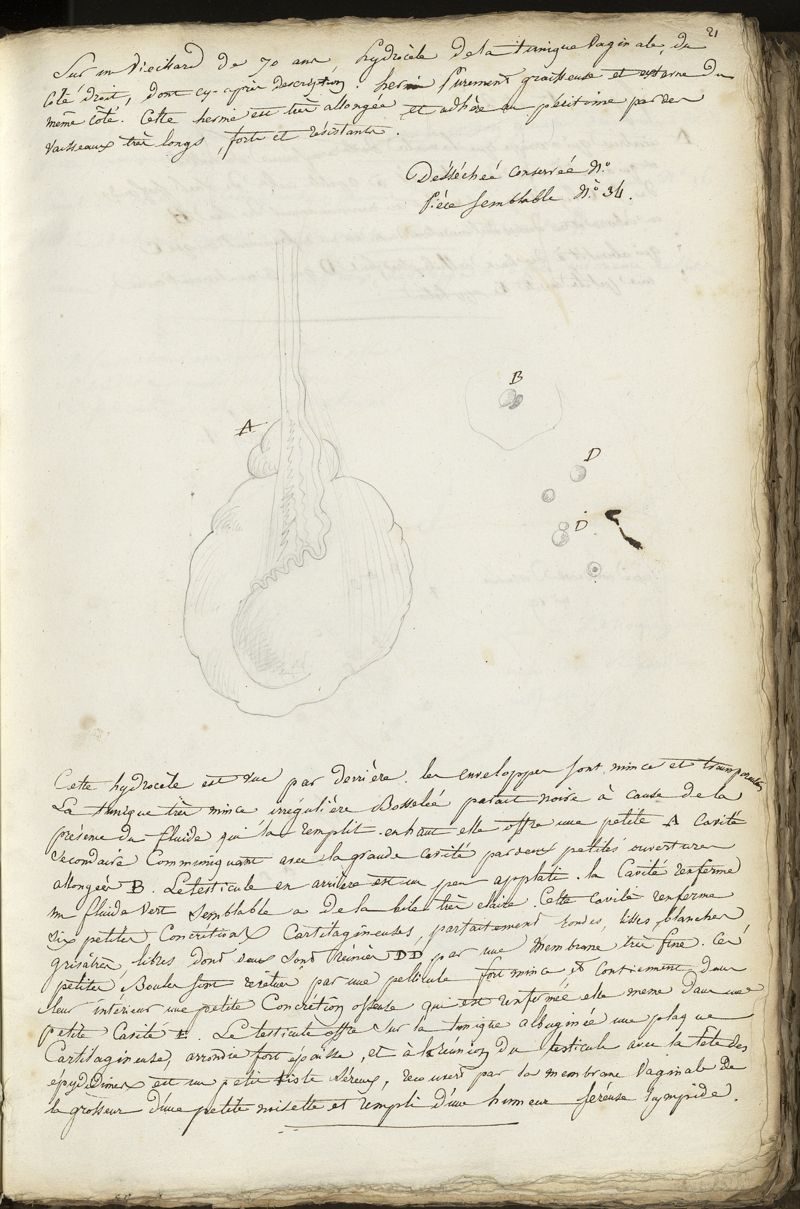 21
Sur un Vieillard de 70 ans hydrocèle de la tunique Vaginale, du
Côté droit, dont cy-après description : hernie purement graisseuse et externe du
même côté. Cette hernie est très allongée et adhère au péritoine par des
vaisseaux très longs, forts et résistants.
Désséchée conservée N.o
Pièce semblable N.o 34.
B
A
D
D
Cette hydrocèle est vue par derrière. les enveloppes sont mince et transparentes
La tunique très mince irrégulière Bosselée parait noire à cause de la
présence du fluide qui la remplit. en haut elle offre une petite A Cavité
secondaire Communiquant avec la grande cavité par deux petites ouvertures
allongées B. Le testicule en arrière est un peu applati. la Cavité renferme
un fluide vert semblable a de la bile très claire. Cette cavité renferme
six petites Concrétions Cartilagineuses, parfaitement rondes, lisses, blanches
grisâtres, libres dont deux sont réunies DD par une membrane très fine. Ces
petites Boules sont revetues par une pellicule fort mince et contiennent dans
leur intérieur une petite Concrétion osseuse qui est renfermée elle meme dans une
petite Cavité E. Le testicule offre sur la tunique albuginée une plaque
Cartilagineuse, arrondie fort épaisse, et à la réunion du testicule avec la tête des
épydidimes est un petit kiste séreux, recouvert par la membrane Vaginale de
la grosseur d'une petite noisette et rempli d'une humeur séreuse lympide.